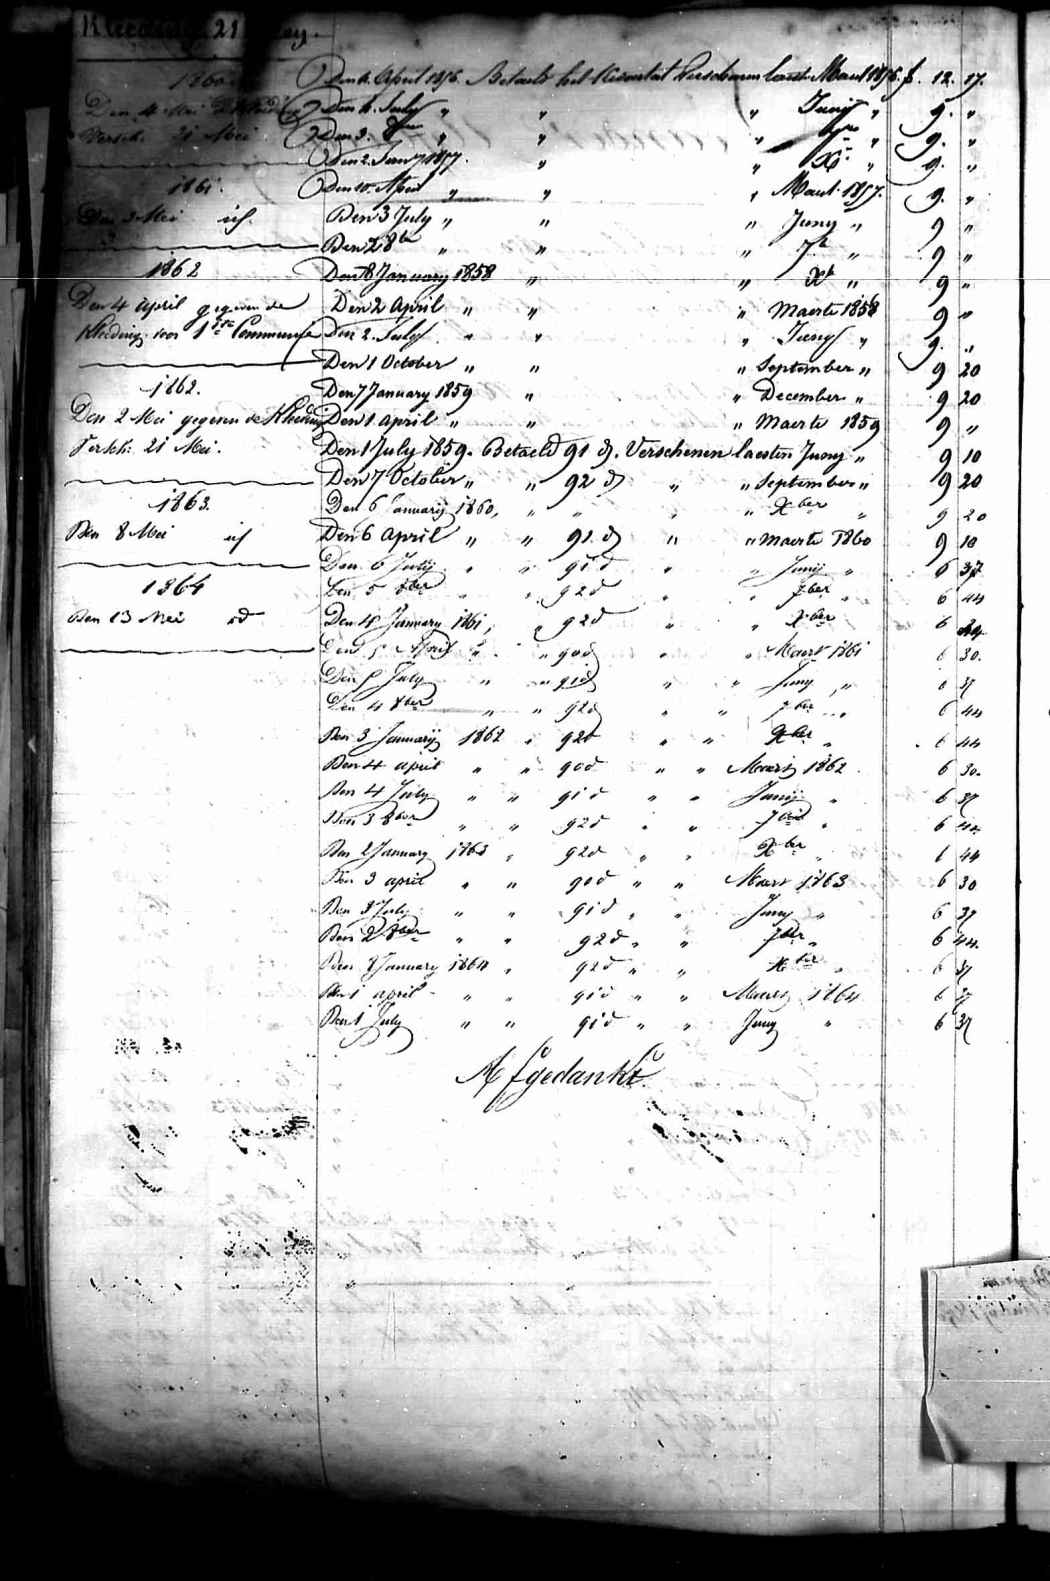 21 Mey.
1860
Den 4 Mei
Versch. 21 Mei
1861.
Den 3 Mei id.
1862
Den 4 april gegeven de
Kleeding voor 1ste Communie
1862.
Den 2 Mei gegeven de Kleeding
Versch: 21 Mei.
1863.
Den 8 Mei id
1864
Den 13 Mei id
Den 4. April 1856. Betaeld het Kwartael Verschenen laest Maert 1856. f. 12. 17.
Den 4. July " " " Juny " 9. "
Den 3. 8ber " " " 7bre " 9. "
Den 2. Jany 1857. " " Xr " 9. "
Den 10. April " " " Maert 1857. 9. "
Den 3 July " " " Juny " 9 "
Den 2 8br " " " 7br " 9 "
Den 8 January 1858 " " Xbr " 9 "
Den 2 April " " " Maerte 1858 9 "
Den 2. July " " " Juny " 9. "
Den 1 October " " " September " 9 20
Den 7 January 1859 " " December " 9 20
Den 1 april " " " Maerte 1859 9 "
Den 1 July 1859. Betaeld 91 d. Verschenen laesten Juny " 9 10
Den 7 October " " 92 d " " September " 9 20
Den 6 January 1860, " " " " Xber " 9 20
Den 6 april " " 91. d " " maerte 1860 9 10
Den 6 July " " 91 d " " Juny " 6 37
Den 5 8ber " " 92 d " " 7ber " 6 44
Den 4 January 1861, " 92 d " " Xber " 6
Den 5 April " " 90 d " " Maert 1861 6 30.
Den 5 July " " 91 d " " Juny " 6 37
Den 4 8ber " " 92 d " " 7ber " 6 44
Den 3 January 1862 " 92 d " " Xber " 6 44
Den 4 april " " 90 d " " Maert 1862 6 30.
Den 4 July " " 91 d " " Juny " 6 37
Den 3 8ber " " 92 d " " 7ber " 6 44
Den 2 January 1863 " 92 d " " Xber " 6 44
Den 3 april " " 90 d " " Maert 1863 6 30
Den 3 July " " 91 d " " Juny " 6 37
Den 2 8ber " " 92 d " " 7ber " 6 44
Den 8 January 1864 " 92 d " " Xber " 6 37
Den 1 april " " 91 d " " Maert 1864 6 37
Den 1 July " " 91 d " " Juny " 6 37
Afgedankt